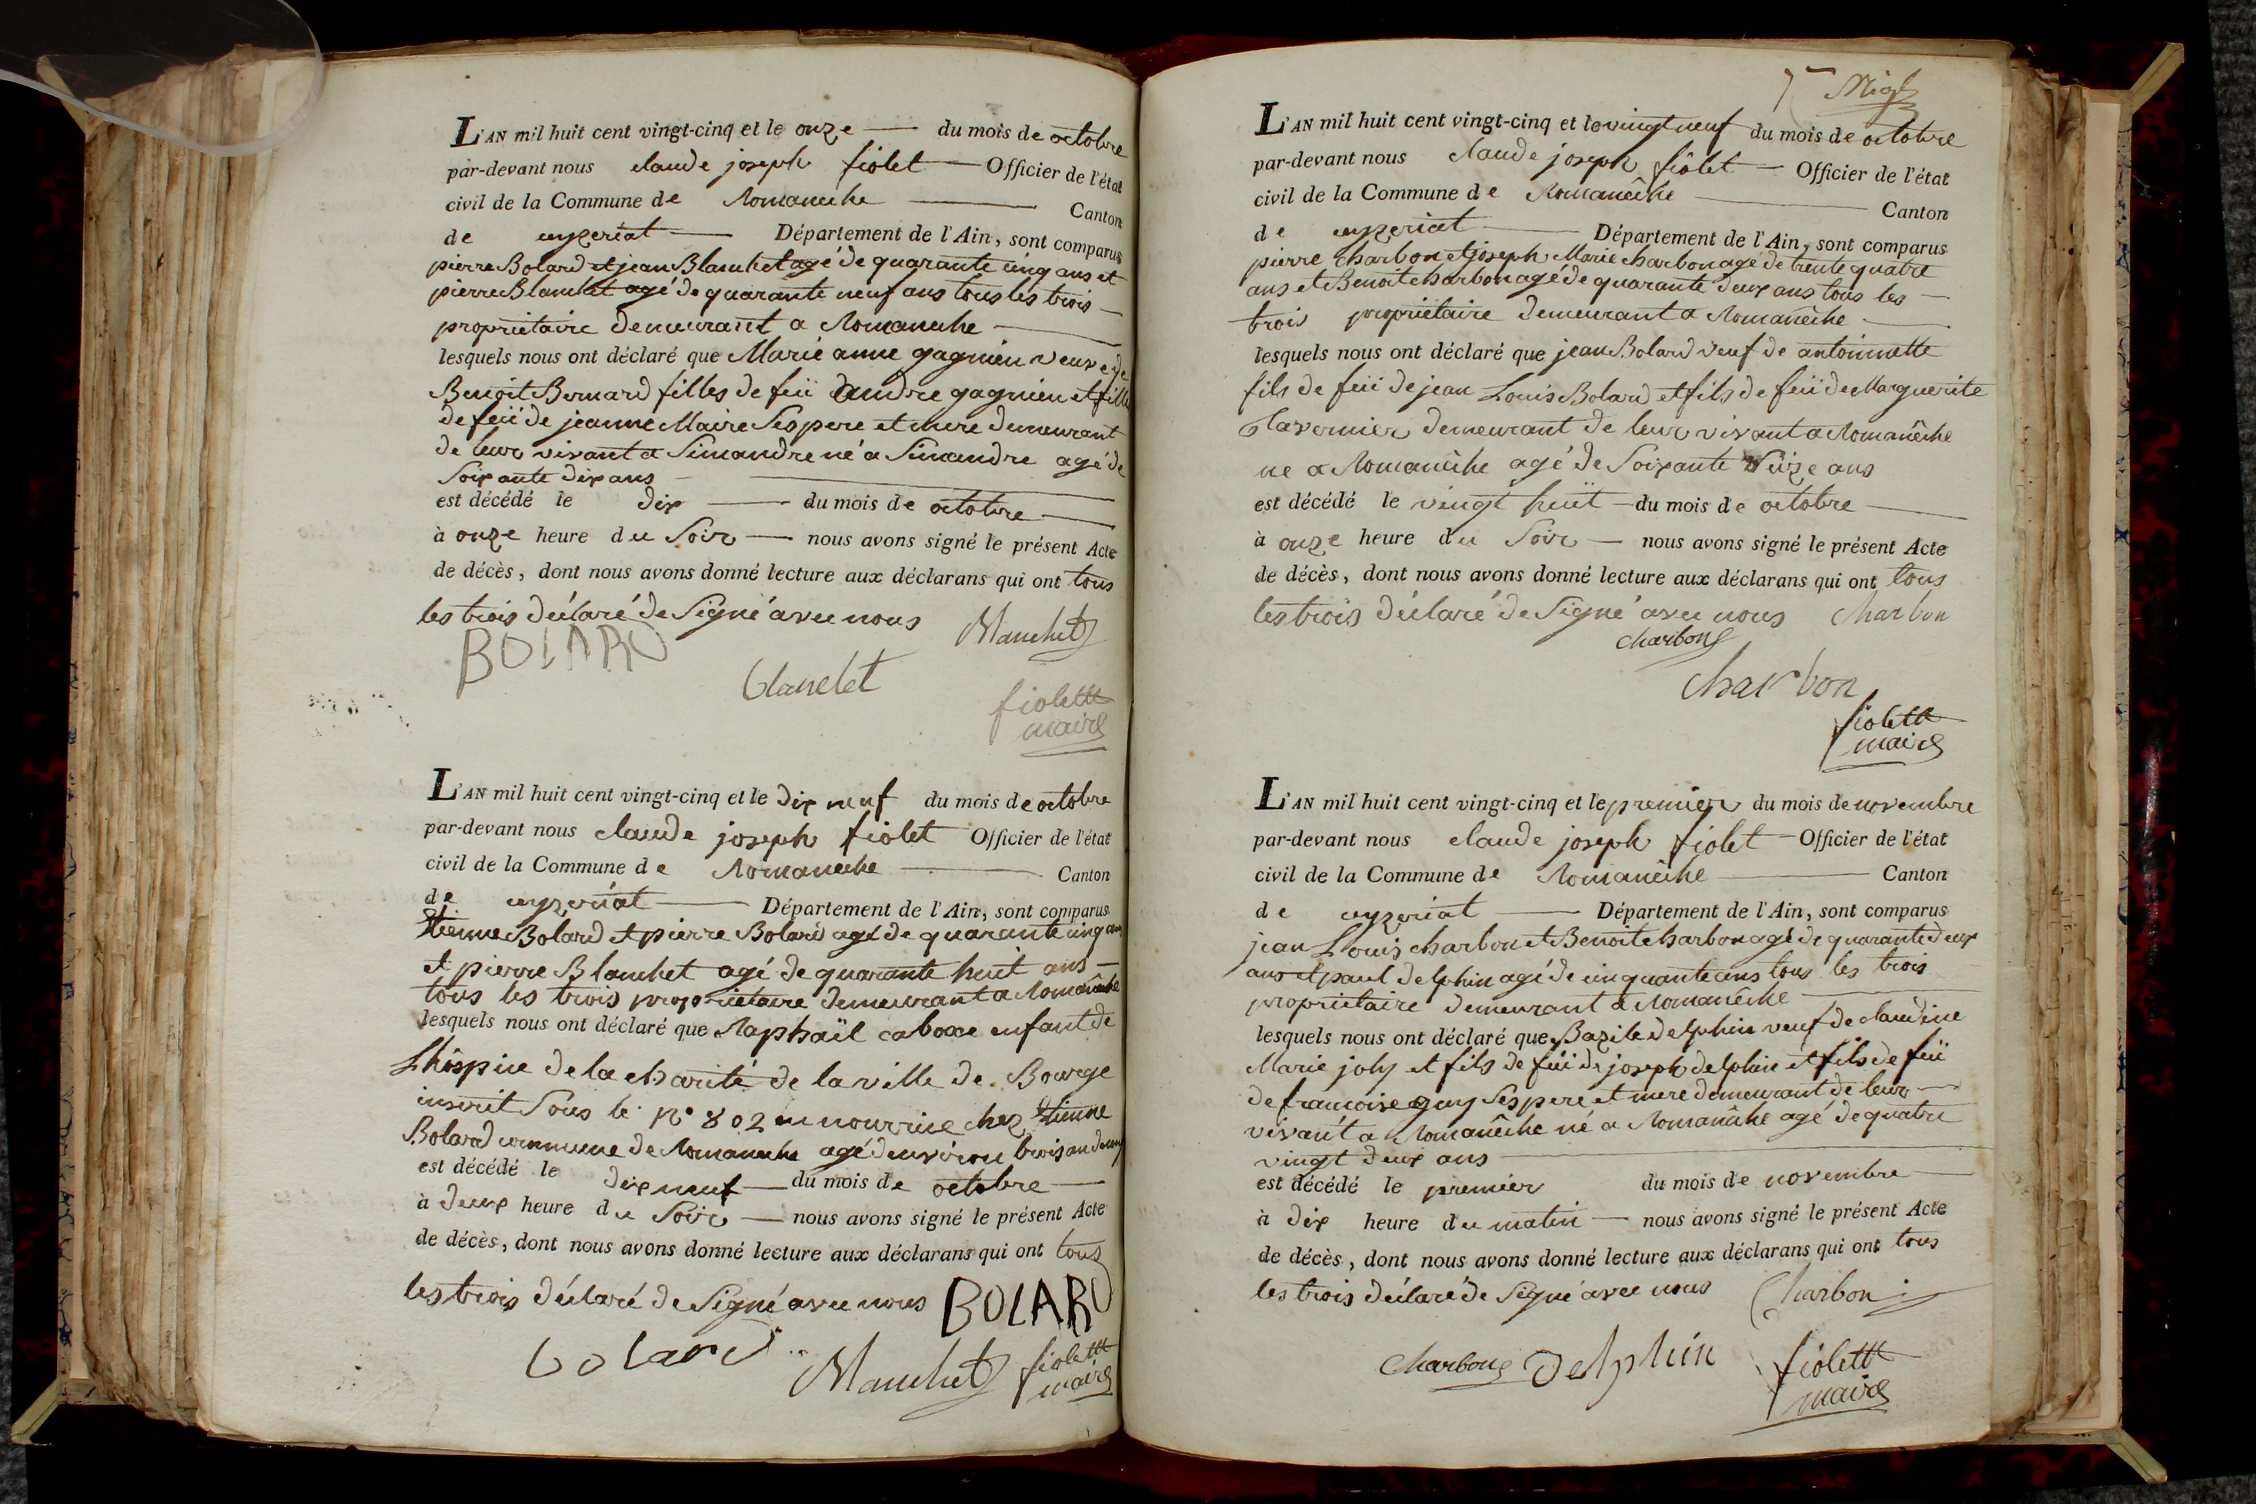 L'AN mil huit cent vingt-cinq et le onze du mois de octobre
par-devant nous claude joseph fiolet Officier de l'état
civil de la Commune de Romaneche Canton
de ceyzeriat Département de l'Ain, sont comparus
pierre Bolard et jean Blanchet agé de quarante cinq ans et
pierre Blanchet agé de quarante neuf ans tous les trois
propriétaire demeurant a Romaneche
lesquels nous ont déclaré que Marie anne gagnieu veuve de
Benoit Bernard filles de feü andre gagnieu et fille
de feüe de jeanne Maire Ses pere et mere demeurant
de leur vivant a Simandre né a Simandre agé de
Soixante dix ans
est décédé le dix du mois de octobre
à onze heure du Soir nous avons signé le présent Acte
de décès, dont nous avons donné lecture aux déclarans qui ont tous
les trois déclaré de Signé avec nous
Blanchet
BOLARD
blanclet
fiolette
maire
L'AN mil huit cent vingt-cinq et le dix neuf du mois de octobre
par-devant nous claude joseph fiolet Officier de l'état
civil de la Commune de Romaneche Canton
de ceyzeriat Département de l'Ain, sont comparus
Etienne Bolard et pierre Bolard agé de quarante cinq ans
et pierre Blanchet agé de quarante huit ans
tous les trois propriétaire demeurant a Romanêche
lesquels nous ont déclaré que Raphaïl caboxe enfant de
Lhôspice de la charité de la ville de Bourge
inscrit Sous le n° 802 en nourrice chez Etienne
Bolard commune de Romaneche agé denviron trois an demy
est décédé le dix neuf du mois de octobre
à deux heure du Soir nous avons signé le présent Acte
de décès, dont nous avons donné lecture aux déclarans qui ont tous
les trois déclaré de Signé avec nous BOLARD
bolard Blanchet fiolette
maire
L'AN mil huit cent vingt-cinq et le vingt neuf du mois de octobre
par-devant nous claude joseph fiôlet Officier de l'état
civil de la Commune de Romanêche Canton
de ceyzeriat Département de l'Ain, sont comparus
pierre charbon et joseph Marie charbon agé de trente quatre
ans et Benoit charbon agé de quarante deux ans tous les
trois propriétaire demeurant a Romanêche
lesquels nous ont déclaré que jean Bolard veuf de antoinette
fils de feü de jean Louis Bolard et fils de feü de Marguerite
tavernier demeurant de leur vivant a Romanêche
ne a Romanêche agé de Soixante Seize ans
est décédé le vingt huit du mois de octobre
à onze heure du Soir nous avons signé le présent Acte
de décès, dont nous avons donné lecture aux déclarans qui ont tous
les trois déclaré de Signé avec nous charbon
charbon
charbon
fiolette
maire
L'AN mil huit cent vingt-cinq et le premier du mois de novembre
par-devant nous claude joseph fiolet Officier de l'état
civil de la Commune de Romanêche Canton
de ceyzeriat Département de l'Ain, sont comparus
jean Louis charbon et Benoit charbon agé de quarante deux
ans et paul delphin agé de cinquante ans tous les trois
propriétaire demeurant a Romanêche
lesquels nous ont déclaré que Bazile delphin veuf de claudine
Marie joly et fils de feü de joseph delphin et fils de feü
de francoise guy Ses pere et mere demeurant de leur
vivant a Romanêche né a Romanêche agé de quatre
vingt deux ans
est décédé le premier du mois de novembre
à dix heure du matin nous avons signé le présent Acte
de décès, dont nous avons donné lecture aux déclarans qui ont tous
les trois déclaré de Signé avec nous Charbon
charbon delphin fiolette
maire